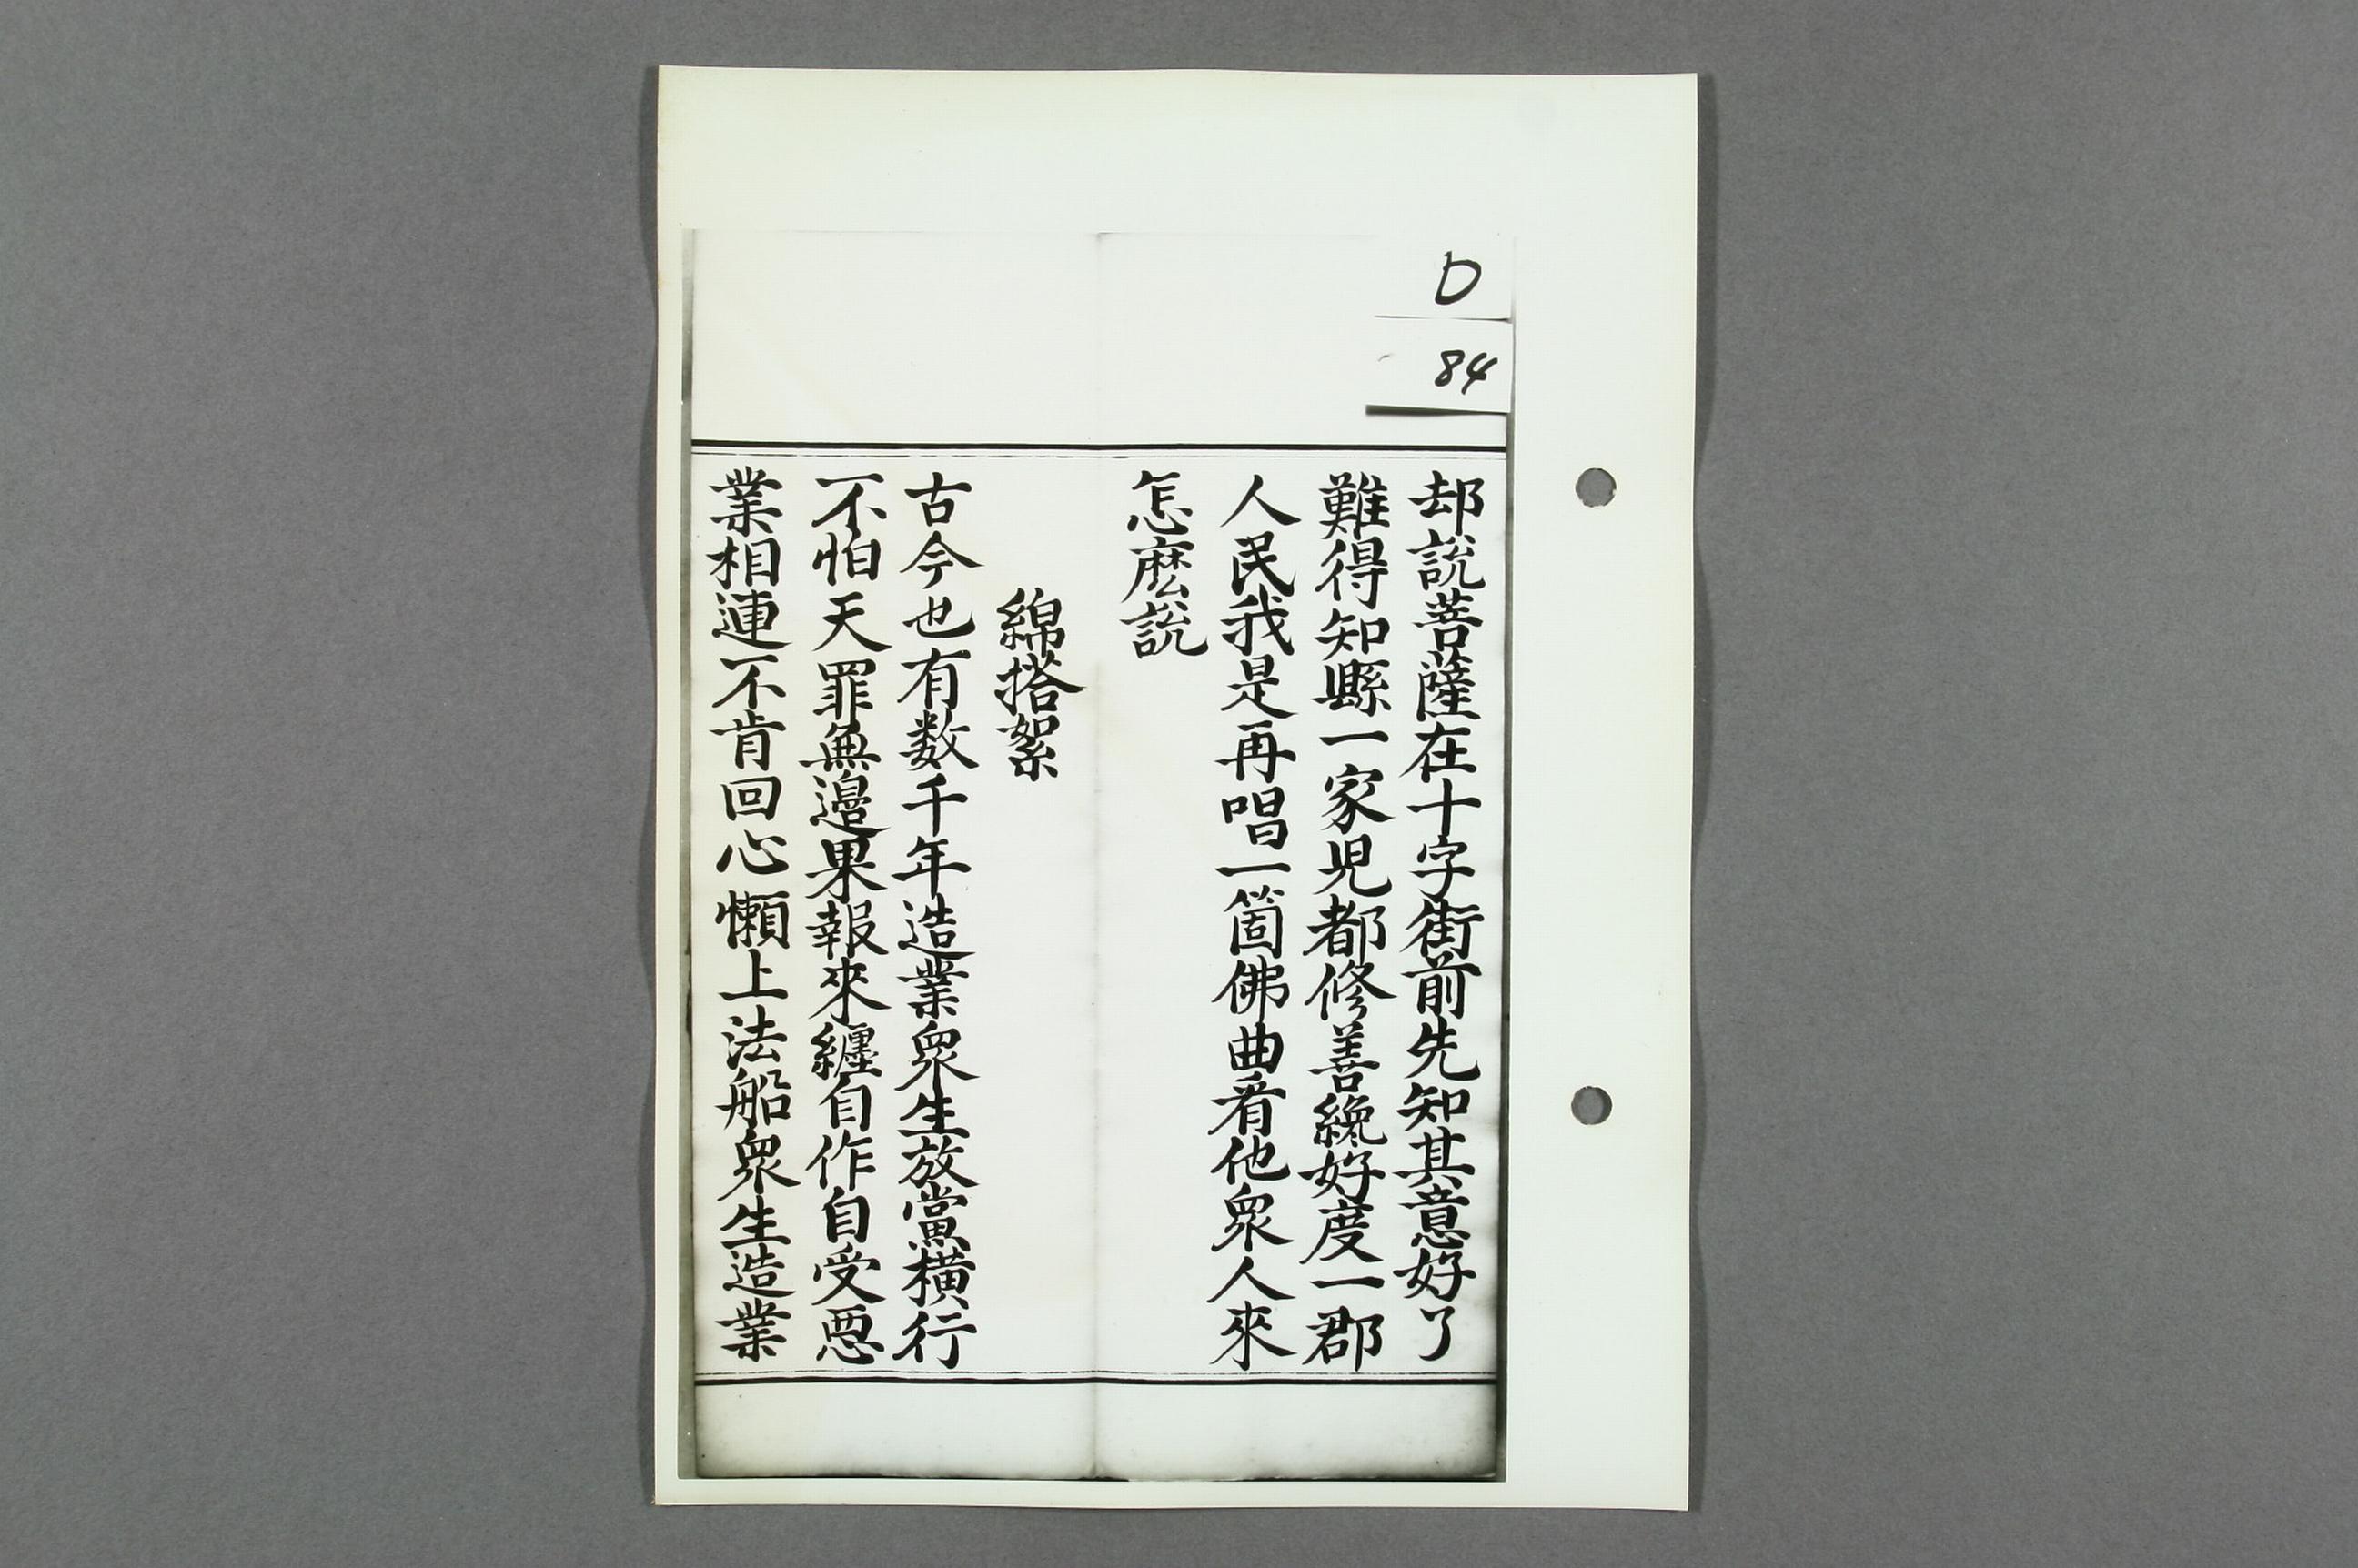 D
84
却說菩薩在十字街前先知其意好了
難得知縣一家児都修善纔好度一郡
人民我是再唱一箇佛曲看他衆人來
怎麽說
綿搭絮
古今也有数千年造業衆生放黨橫行
不怕天罪無邊果報來纏自作自受悪
業相連不肯回心懶上法船衆生造業